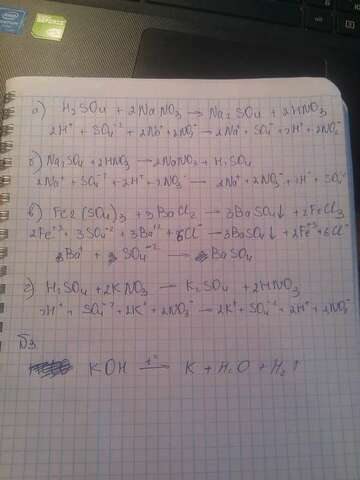 intel
GEFORCE
а) H₂SO₄ + 2NaNO₃ → Na₂SO₄ + 2HNO₃
2H⁺ + SO₄⁻² + 2Na⁺ + 2NO₃⁻ → 2Na⁺ + SO₄⁻ + 2H⁺ + 2NO₃⁻
б) Na₂SO₄ + 2HNO₃ → 2NaNO₃ + H₂SO₄
2Na⁺ + SO₄⁻² + 2H⁺ + 2NO₃⁻ → 2Na⁺ + 2NO₃⁻ + 2H⁺ + SO₄⁻²
в) Fe₂(SO₄)₃ + 3BaCl₂ → 3BaSO₄↓ + 2FeCl₃
2Fe⁺³ + 3SO₄⁻² + 3Ba⁺² + 6Cl⁻ → 3BaSO₄↓ + 2Fe⁺³ + 6Cl⁻
3Ba⁺ + 3SO₄⁻² → BaSO₄
г) H₂SO₄ + 2KNO₃ → K₂SO₄ + 2HNO₃
2H⁺ + SO₄⁻² + 2K⁺ + 2NO₃⁻ → 2K⁺ + SO₄⁻² + 2H⁺ + 2NO₃⁻
KOH → K + H₂O + H₂↑